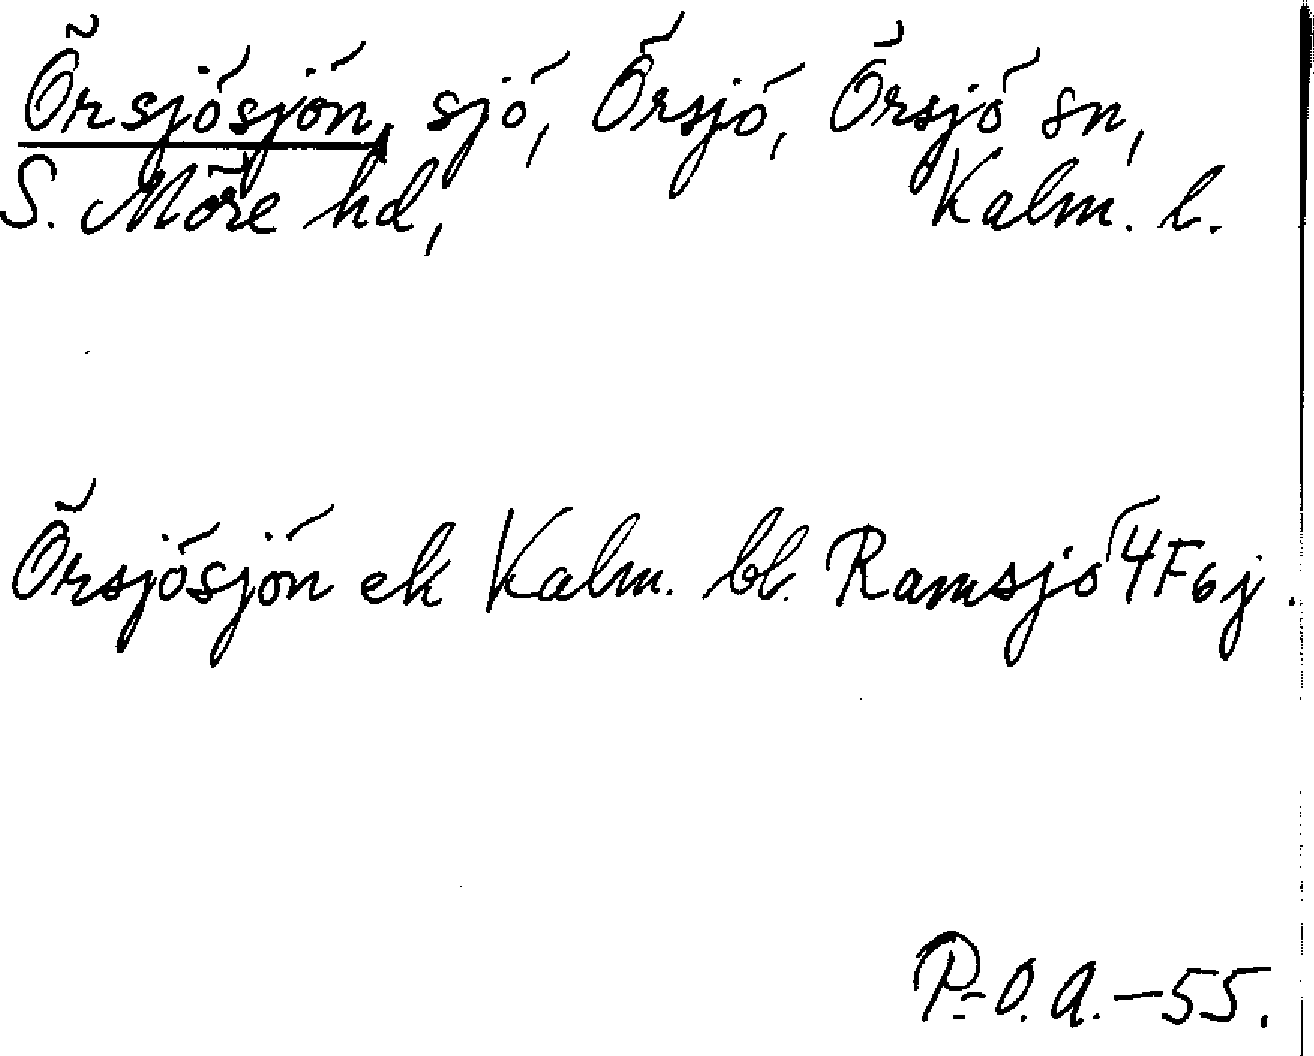 Örsjösjön, sjö, Örsjö, Örsjö sn,
S. Möre hd, Kalm. l.
Örsjösjön ek Kalm. bl. Ramsjö 4F6j.
P-O.A.-55.